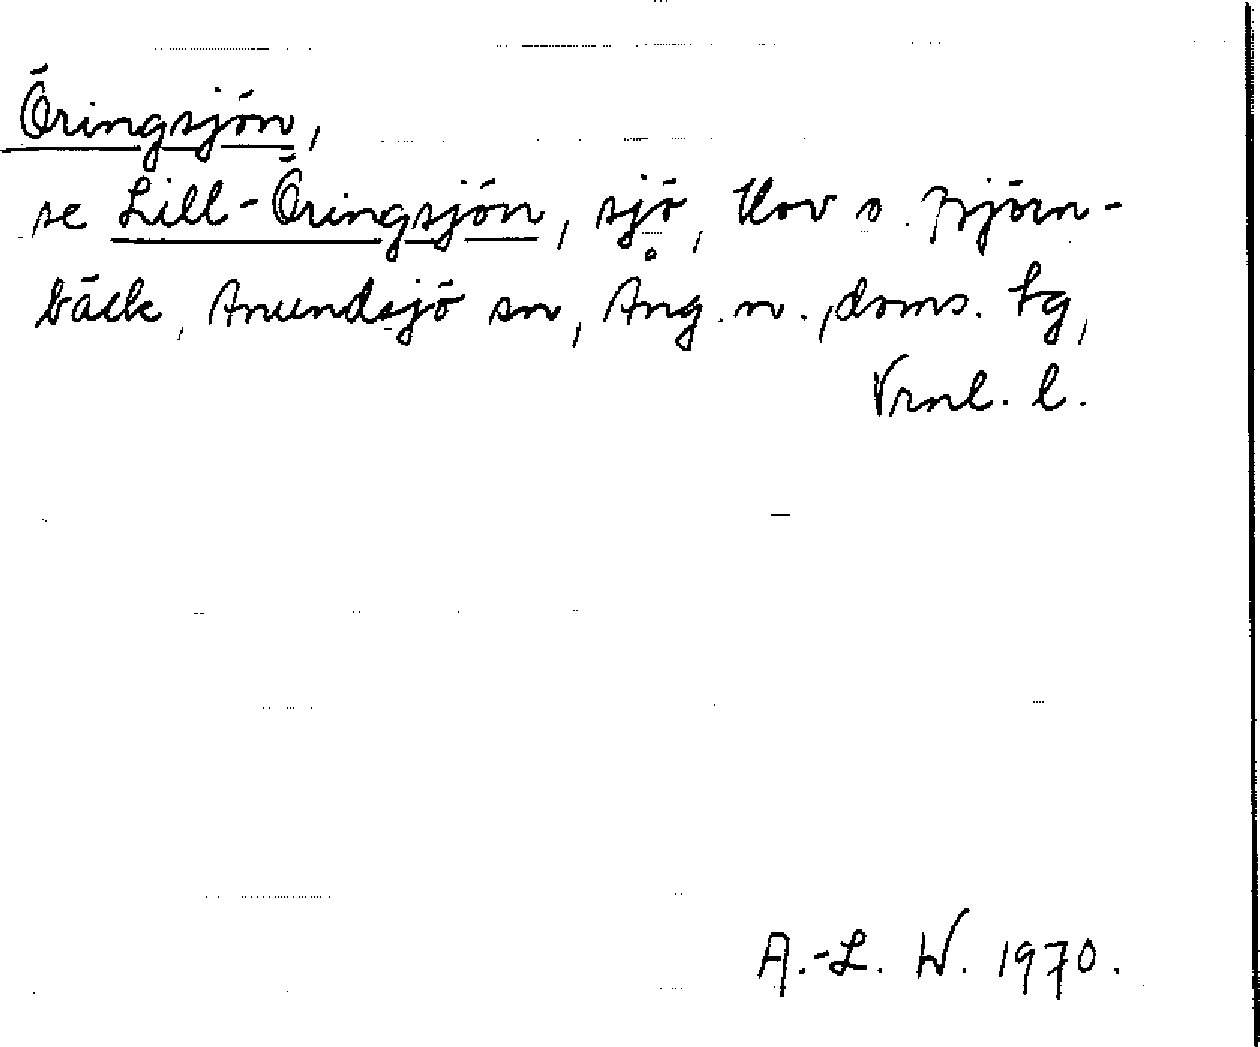 Öringsjön,
se Lill-Öringsjön, sjö, Hov o. Björn-
bäck, Anundsjö sn, Ång. n. doms. tg,
Vrnl. l.
A.-L. W. 1970.